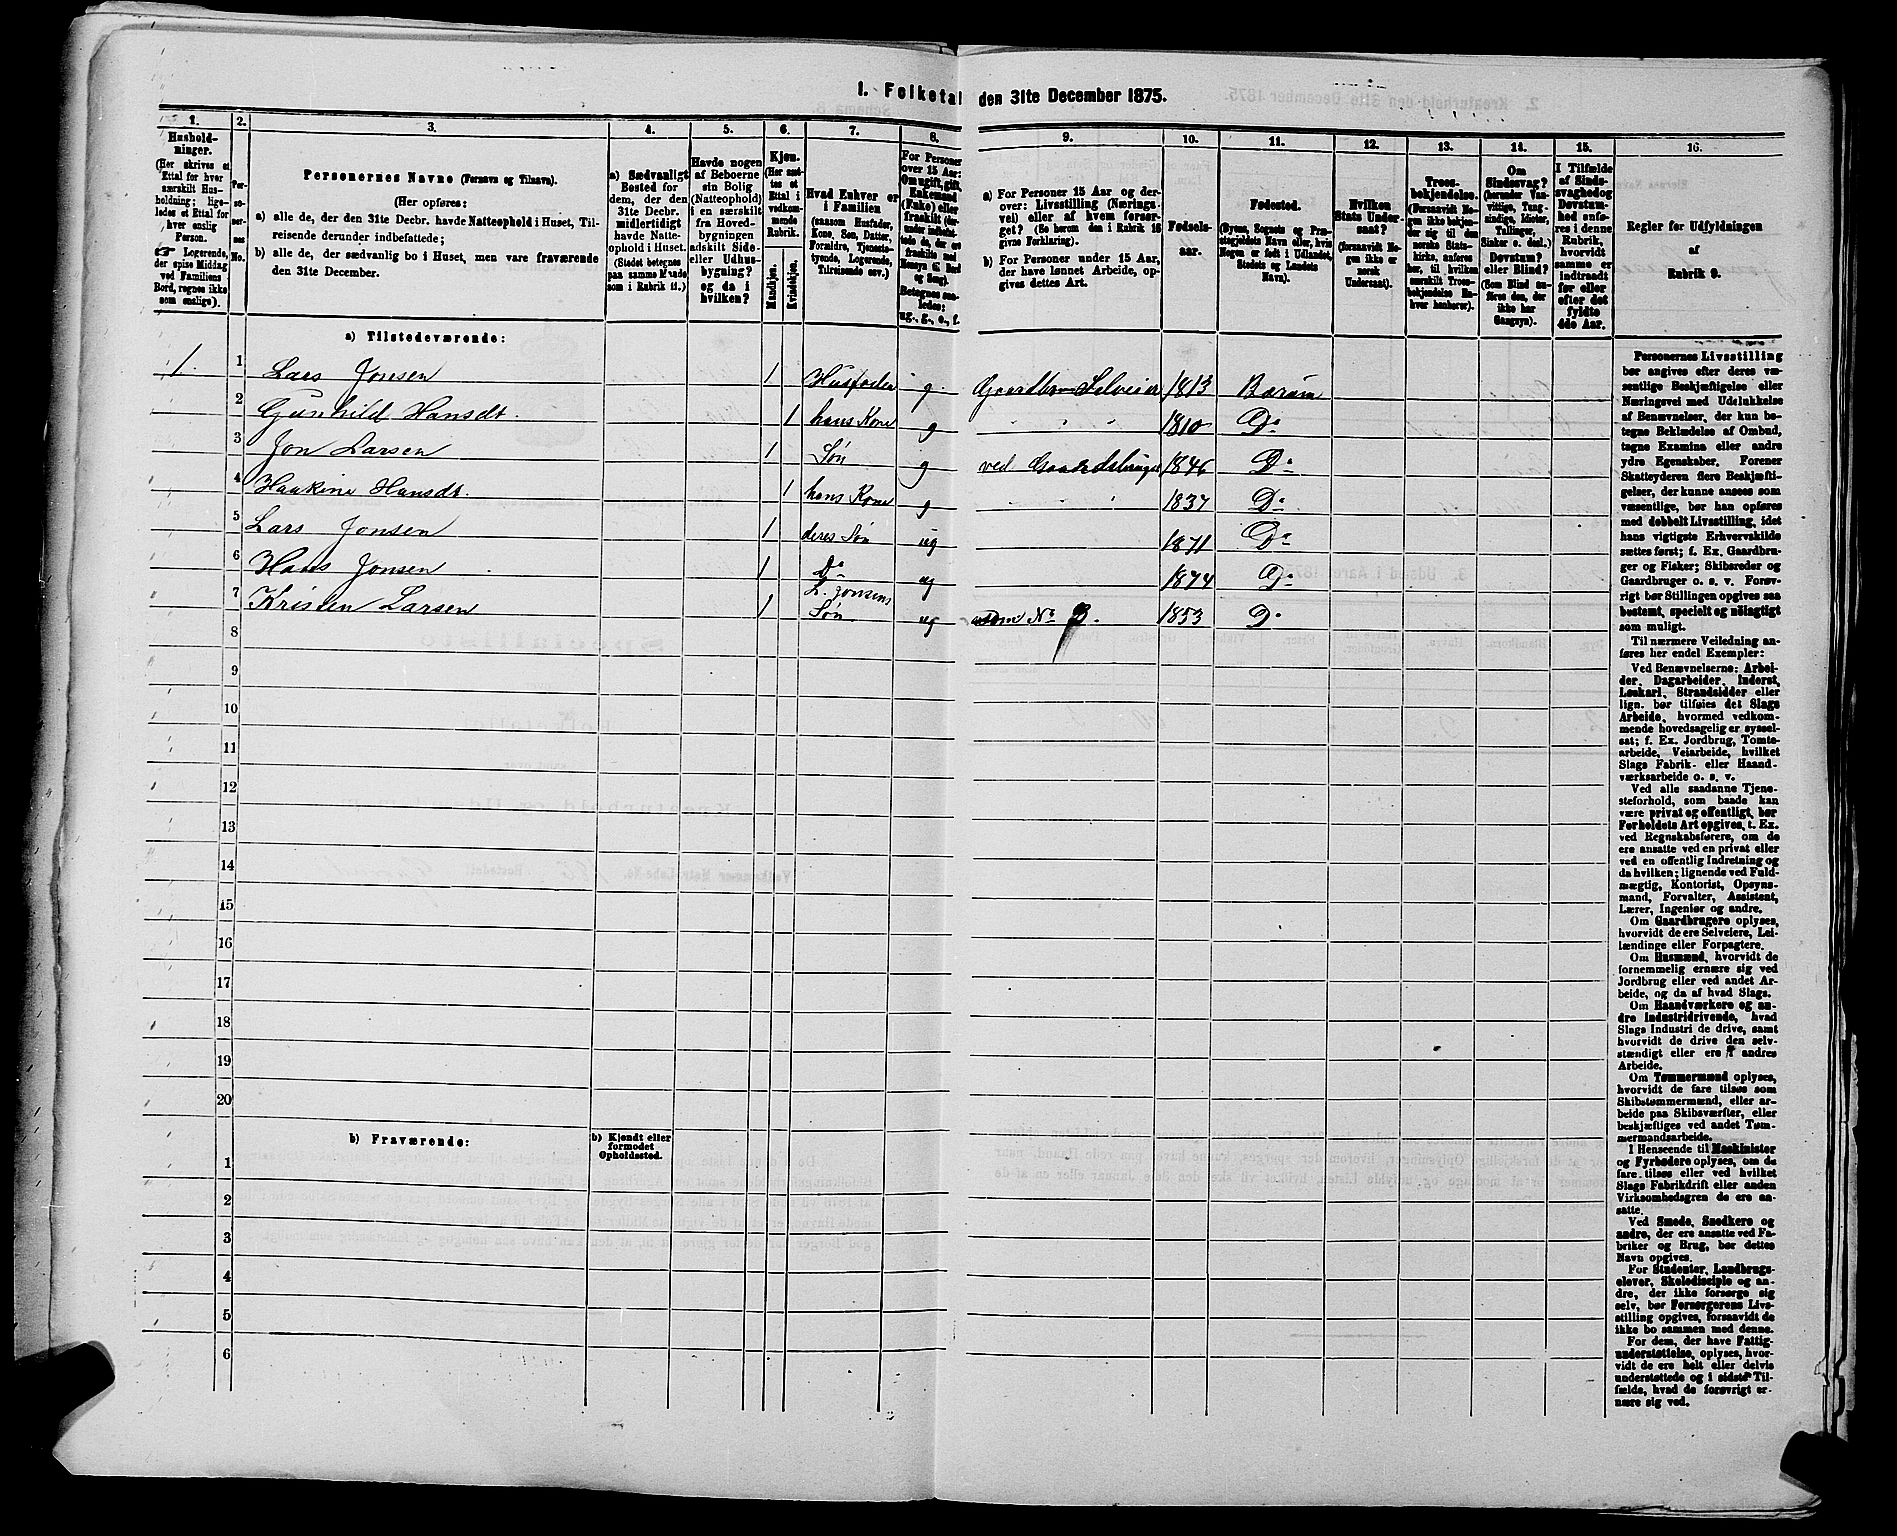 1. Folketal den 31te December 1875.
1. 2. 3. 4. 5. 6. 7. 8. 9. 10. 11. 12. 13. 14. 15. 16.
Husholdninger.
(Her skrives et
Ettal for hver
særskilt Husholdning; ligeledes et Ettal for
hver enslig
Person.
Logerende,
der spise Middag
ved Familiens
Bord, regnes ikke
som enslige).
Personernes No.
Personernes Navne (Fornavn og Tilnavn).
(Her opføres:
a) alle de, der den 31te Decbr. havde Natteophold i Huset, Tilreisende derunder indbefattede;
b) alle de, der sædvanlig bo i Huset, men vare fraværende
den 31te December.
a) Sædvanligt
Bosted for
dem, der den
31te Decbr.
midlertidigt
havde Natteophold i Huset.
(Stedet betegnes
paa samme Maade
som i Rubrik 11.)
Havde nogen
af Beboerne
sin Bolig
(Natteophold)
i en særskilt
fra Hovedbygningen
adskilt Side-
eller Udhusbygning?
og da i
hvilken?
Kjøn.
(Her sættes et
Ettal i
vedkommende
Rubrik.
Mandkjøn.
Kvindekjøn.
Hvad Enhver er
i Familien
(saasom Husfader,
Kone, Søn, Datter,
Forældre, Tjenestetyende, Logerende,
Tilreisende osv.)
For Personer
over 15 Aar:
Om ugift, gift,
Enkemand
(Enke) eller
fraskilt
Betegnes saaledes:
ug., g., e., f.
a) For Personer 15 Aar og derover: Livsstilling (Næringsvei) eller af hvem forsørget? (Se herom den i Rubrik 16
givne Forklaring).
b) For Personer under 15 Aar,
der have lønnet Arbeide, opgives dettes Art.
Fødselsaar.
Fødested.
(Byens, Sognets og Præstegjeldets Navn eller, hvis
Nogen er født i Udlandet,
Stedets og Landets
Navn).
Hvilken
Stats Undersaat?
(forsaavidt Nogen ikke er
norsk
Undersaat).
Troesbekjendelse.
(Forsaavidt Nogen ikke bekjender sig til den
norske Statskirke, anføres
her, til hvilken
særskilt Troesbekjendelse Enhver henhører).
Om
Sindssvag?
(herunder Vanvittige, Tungsindige, Idioter,
Tullinger,
Sinker o. desl.)
Døvstum?
eller Blind?
(Som Blind anføres den, der
ikke har
Gangsyn).
I Tilfælde
af Sindssvaghed og
Døvstumhed anføres i denne
Rubrik,
hvorvidt
samme er
indtraadt
før eller
efter det
fyldte
4de Aar.
Regler for Udfyldningen
af
Rubrik 9.
a) Tilstedeværende:
1. 1 Lars Jonsen 1 Husfader g Gaardbr Selveier 1813 Bærum
2 Gunhild Hansdt. 1 hans Kone g " " " 1810 Do
3 Jon Larsen 1 Søn g ved Gaardsbruget 1846 Do
4 Haakine Hansdt. 1 hans Kone g " " " 1837 Do
5 Lars Jonsen 1 deres Søn ug 1871 Do
6 Hans Jonsen 1 Do ug 1874 Do
7 Kristen Larsen 1 L. Jonsens Søn ug som No 3. 1853 Do
8
9
10
11
12
13
14
15
16
17
18
19
20
b) Fraværende:
b) Kjendt eller
formodet
Opholdssted.
1
2
3
4
5
6
Personernes Livsstilling
bør angives efter deres væsentlige Beskjæftigelse eller
Næringsvei med Udelukkelse
af Benævnelser, der kun betegne Beklædelse af Ombud,
tagne Examina eller andre
ydre Egenskaber. Forener
Skatteyderen flere Beskjæftigelser, der kunne ansees som
væsentlige, bør han opføres
med dobbelt Livsstilling, idet
hans vigtigste Erhvervskilde
sættes først; f. Ex. Gaardbruger og Fisker; Skibsreder og
Gaardbruger o. s. v. Forøvrigt bør Stillingen opgives saa
bestemt, specielt og nøiagtigt
som muligt.
Til nærmere Veiledning anføres her endel Exempler:
Ved Benævnelserne: Arbeider, Dagarbeider, Inderst,
Løskarl, Strandsidder eller
lign. bør tilføies det Slags
Arbeide, hvormed vedkommende hovedsagelig er sysselsat; f. Ex. Jordbrug, Tomtearbeide, Veiarbeide, hvilket
Slags Fabrik- eller Haandværksarbeide o. s. v.
Ved alle saadanne Tjenesteforhold, som baade kan
være privat og offentligt, bør
Forholdets Art opgives, t. Ex.
ved Regnskabsførere, om de
ere ansatte ved en privat eller
ved en offentlig Indretning og
da hvilken; lignende ved Fuldmægtig, Kontorist, Opsynsmand, Forvalter, Assistent,
Lærer, Ingeniør og andre.
Om Gaardbrugere oplyses,
hvorvidt de ere Selveiere, Leilændinge eller Forpagtere.
Om Husmænd, hvorvidt de
fornemmelig ernære sig ved
Jordbrug eller ved andet Arbeide, og da af hvad Slags.
Om Haandværkere og andre Industridrivende, hvad
Slags Industri de drive, samt
hvorvidt de drive den selvstændigt eller ere i andres
Arbeide.
Om Tømmermænd oplyses,
hvorvidt de fare tilsøs som
Skibstømmermænd, eller arbeide paa Skibsværfter, eller
beskjæftiges ved andet Tømmermandsarbeide.
I Henseende til Maskinister
og Fyrbødere oplyses, om de
fare tilsøs eller ved hvilket
Slags Fabrikdrift eller anden
Virksomhedsgren de ere ansatte.
Ved Smede, Snedkere og
andre, der ere ansatte ved Fabriker og Brug, bør dettes
Navn opgives.
For Studenter, Landbrugselever, Skoledisciple og andre, der ikke forsørge sig
selv, bør Forsørgerens Livsstilling opgives, forsaavidt de
ikke bo sammen med denne.
For dem, der have Fattigunderstøttelse, oplyses, hvorvidt de ere helt eller delvis
understøttede og i sidste Tilfælde, hvad de forøvrigt ernære sig ved.